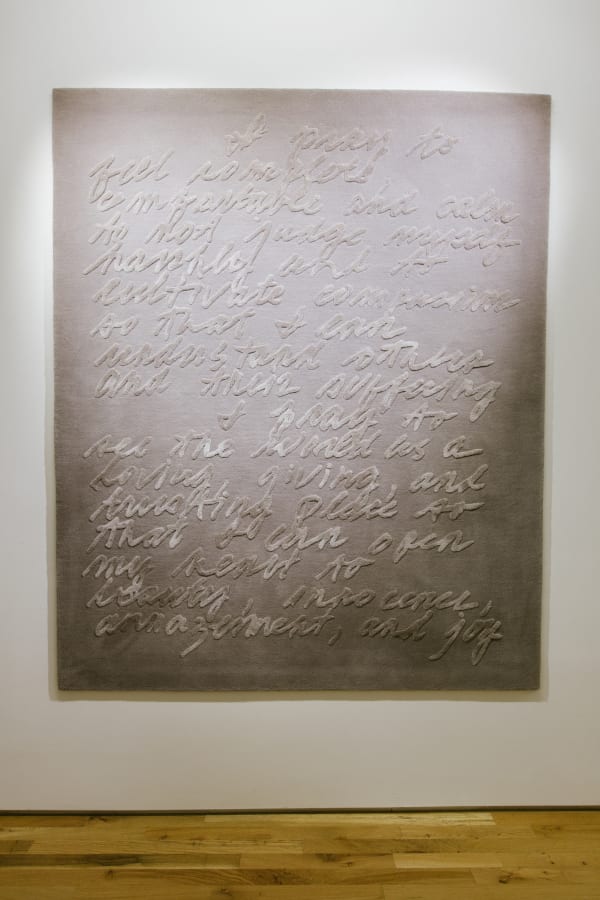 I pray to
feel complete,
comfortable and calm
to not judge myself
harshly and to
cultivate compassion
so that I can
understand others
and their suffering
I pray to
see the world as a
loving, giving, and
trusting place so
that I can open
my heart to
beauty, innocence,
amazement, and joy